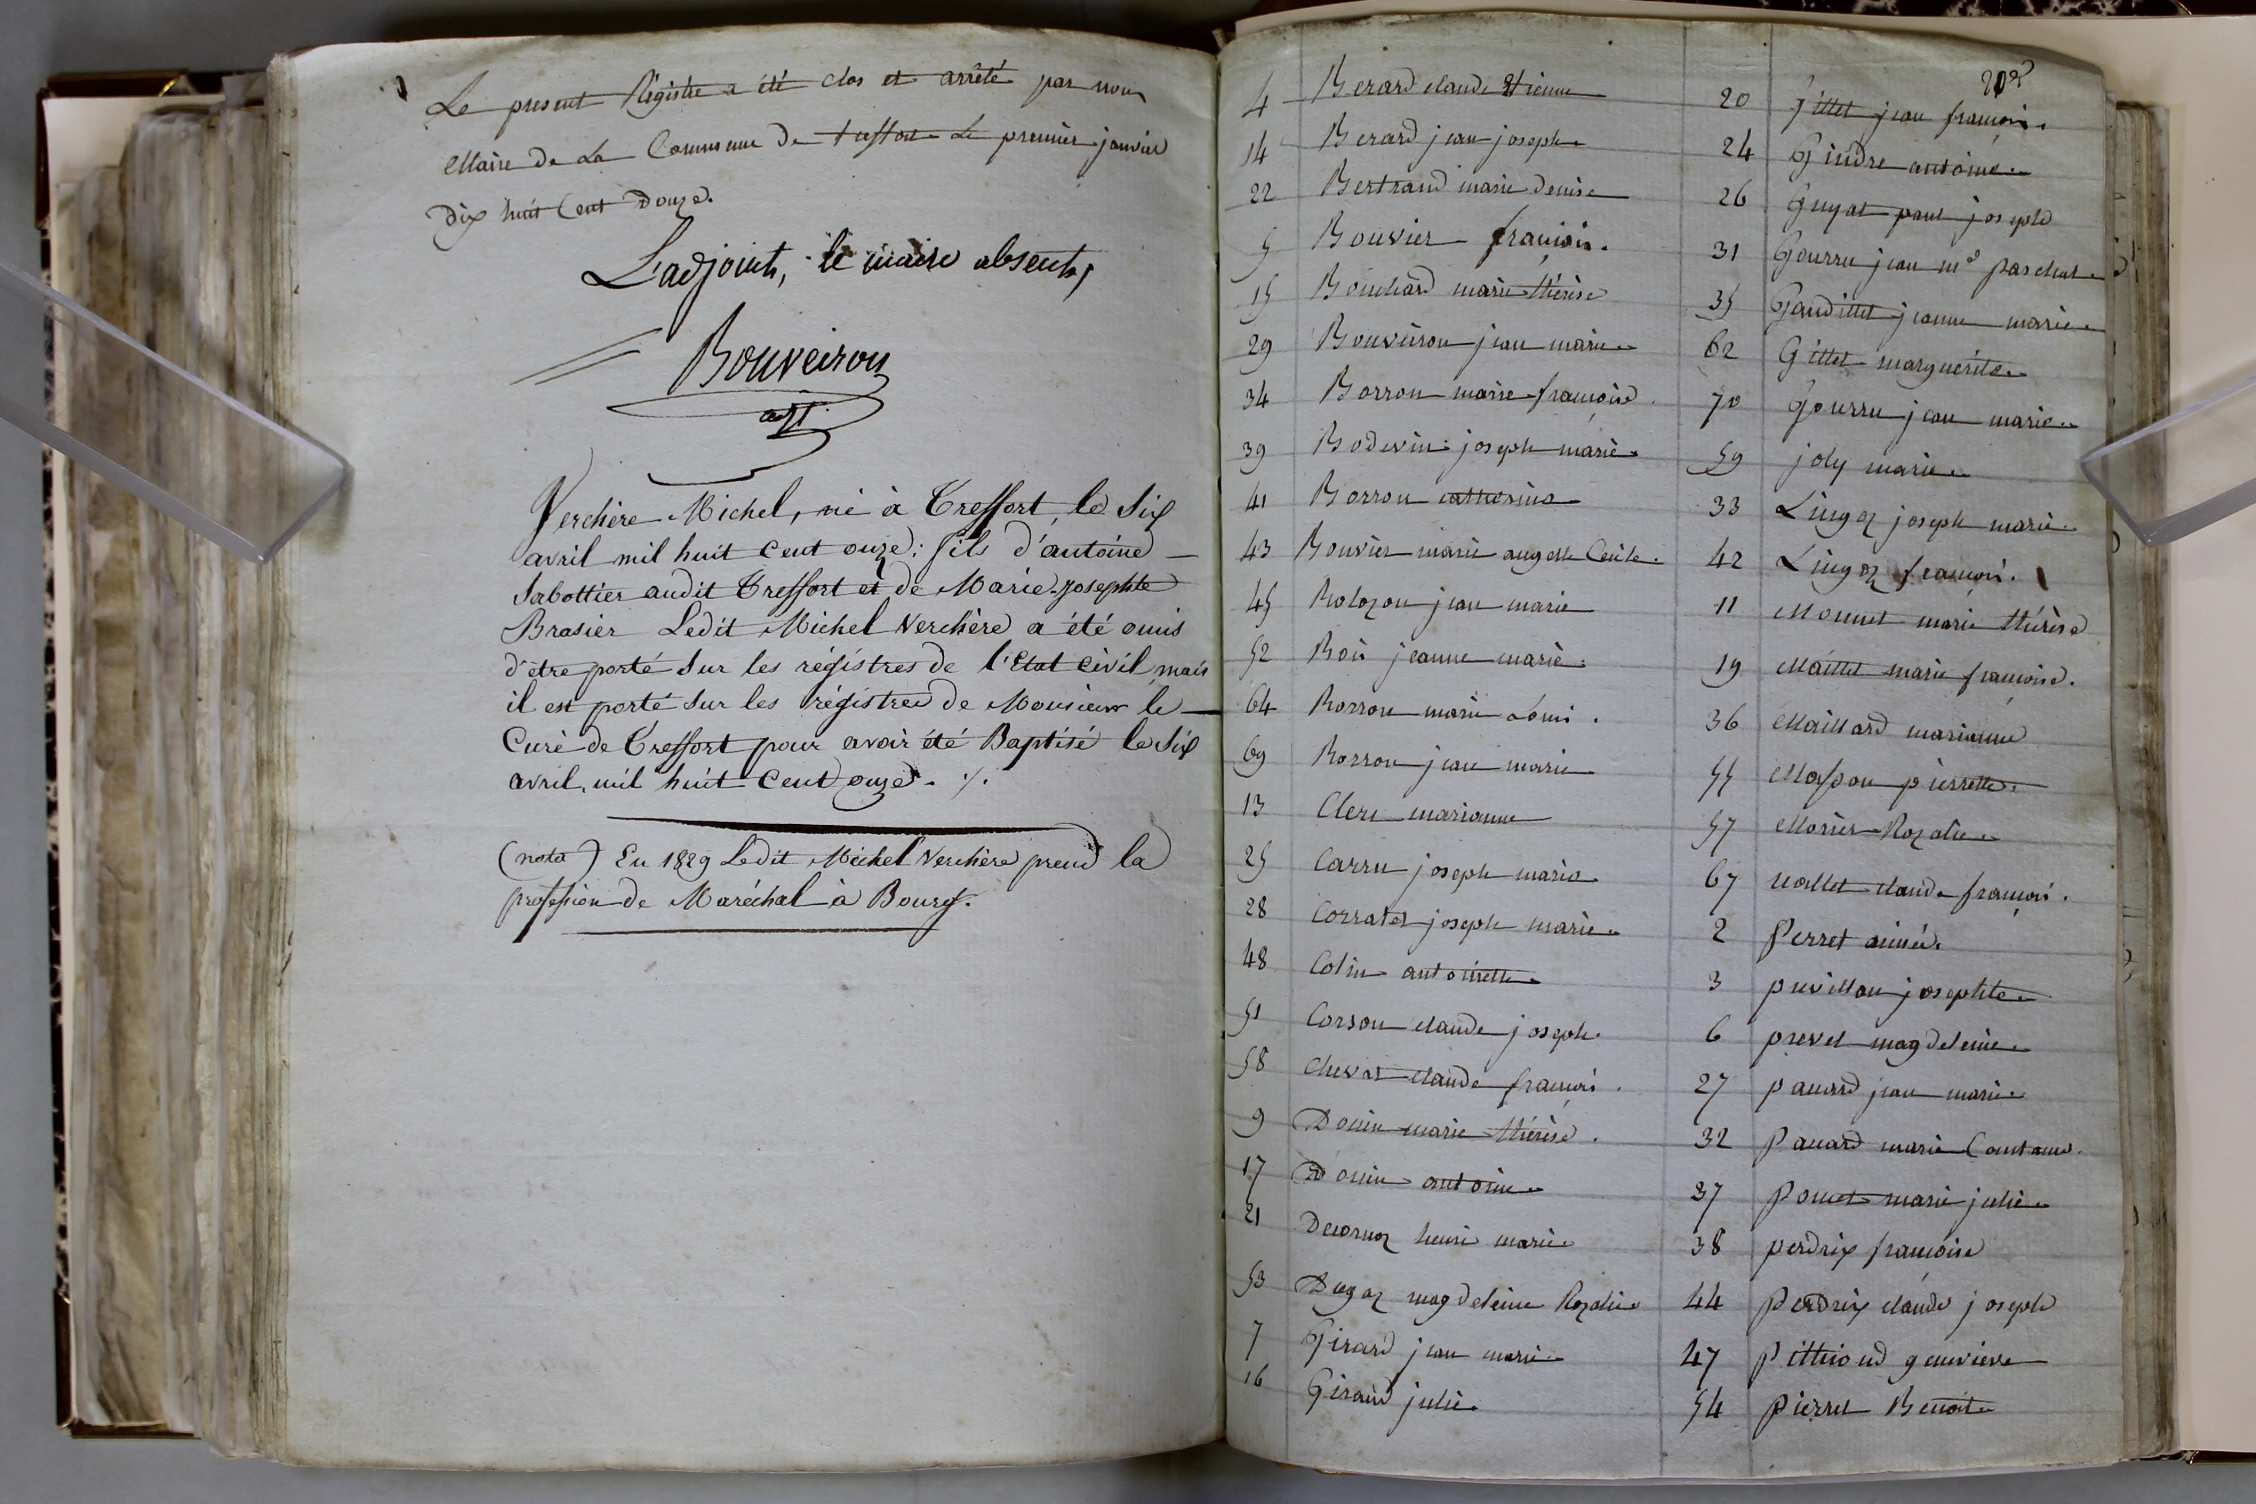 Le present Régistre a été clos et arrêté par nous
Maire de La Commune de treffort Le premier janvier
Dix huit Cent Douze.
L'adjoint, le maire absent,
Bouveiron
adjt
Verchère Michel, né à Treffort, le Six
avril mil huit cent onze; fils d'antoine
Sabottier audit Treffort et de Marie-josephte
Brasier Ledit Michel Verchère a été omis
d'être porté sur les régistres de l'Etat civil, mais
il est porté sur les régistres de Monsieur le
Curé de Treffort pour avoir été Baptisé le Six
avril, mil huit cent onze ./.
(nota) En 1829 Ledit Michel Verchère prend la
profession de Maréchal à Bourg.
4 Berard claude Etienne
14 Berard jean joseph
22 Bertrand marie denise
5 Bouvier françois.
15 Bouchard marie thérèse
29 Bouveiron jean marie
34 Borron marie françoise
39 Bodevin joseph marie
41 Borron catherine
43 Bouvier marie Cecile.
45 Bolozon jean marie
52 Bois jeanne marie.
64 Borron marie
69 Borron jean marie
13 Clerc marianne
25 Carru joseph marie
28 joseph marie
48 Colin antoinette
51 Corson claude joseph
58 claude françois.
9 Douin marie thérèse.
17 Douin antoine
21 Decornoz henri marie
53 magdeleine Rozalie
7 Girard jean marie
16 Giraud julie
202
20 Gillet jean françois.
24 Gindre antoine
26 Guyat paul joseph
31 Gourru jean
35 Gaudillet jeanne marie
62 Gillet marguerite
70 Gourru jean marie
59 joly marie
33 Lingoz joseph marie
42 Lingoz françois.
11 Monnet marie thérèse
19 Maillet marie françoise.
36 Maillard marianne
55 Masson pierrette
57 Morier Rozalie
67 claude françois.
2 Perret aimée.
3 puvillon josephte
6 prevel magdeleine
27 pauard jean marie
32 pauard marie
37 Ponet marie julie
38 perdrix françoise
44 perdrix claude joseph
47 pitthioud genevieve
54 pierret Benoit